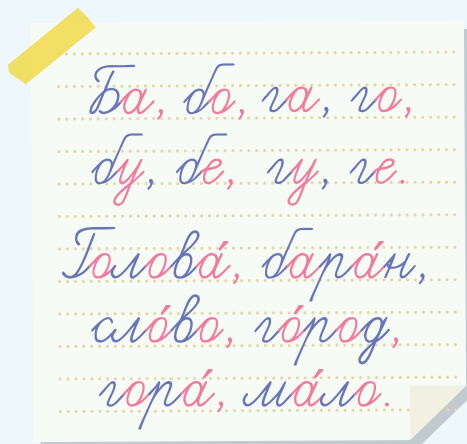 Ба, бо, га, го,
бу, бе, гу, ге.
Голова́, бара́н,
сло́во, го́род,
гора́, ма́ло.